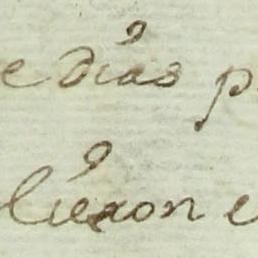 e dias p
lieron e